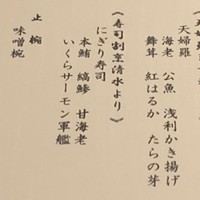 天婦羅
海老 公魚 浅利かき揚げ
舞茸 紅はるか たらの芽
《寿司割烹清水より》
にぎり寿司
本鮪 縞鯵 甘海老
いくらサーモン軍艦
止椀
味噌椀